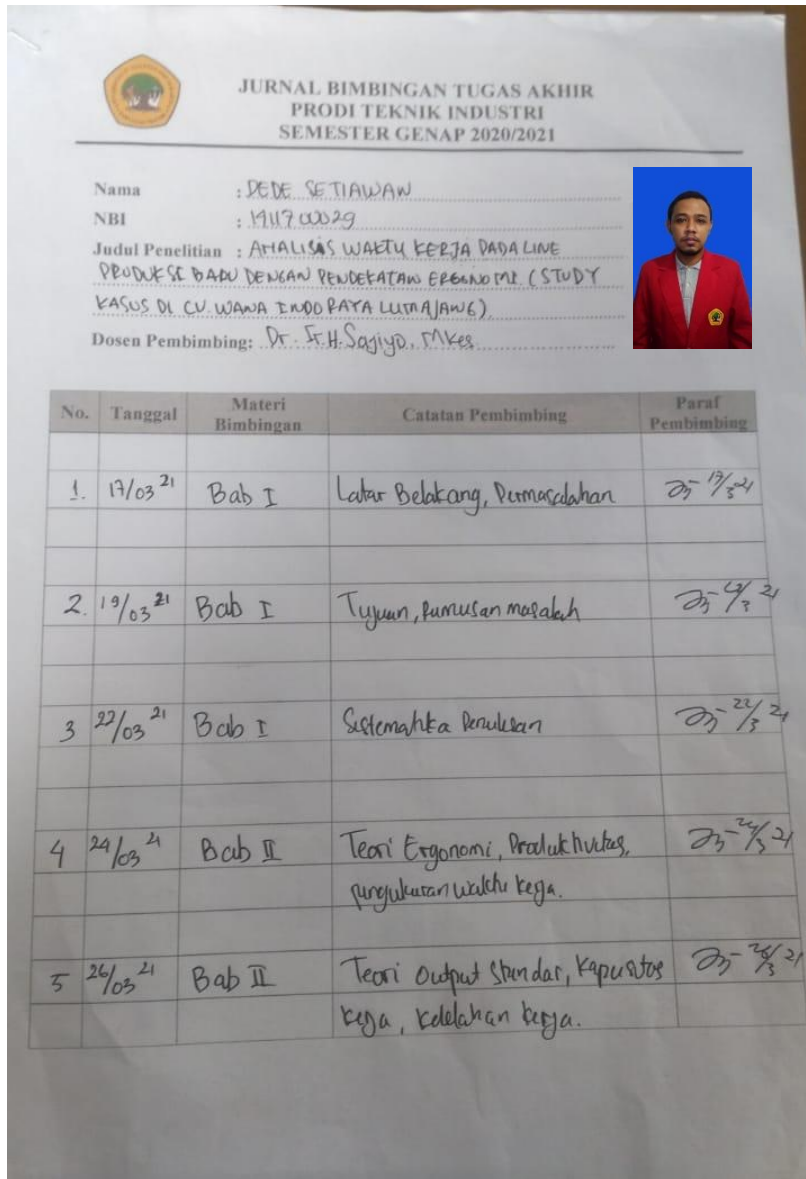 JURNAL BIMBINGAN TUGAS AKHIR
PRODI TEKNIK INDUSTRI
SEMESTER GENAP 2020/2021
Nama : DEDE SETIAWAN
NBI : 1411700029
Judul Penelitian : ANALISIS WAKTU KERJA PADA LINE
PRODUKSI BARU DENGAN PENDEKATAN ERGONOMI. (STUDY
KASUS DI CV. WANA INDO RAYA LUMAJANG)
Dosen Pembimbing: Dr. Ir. H. Sajiyo, M.Kes
No. Tanggal Materi Bimbingan Catatan Pembimbing Paraf Pembimbing
1. 17/03 21 Bab I Latar Belakang, Permasalahan 17/3 21
2. 19/03 21 Bab I Tujuan, Rumusan masalah 21
3 22/03 21 Bab I Sistematika Penulisan 22/3 21
4 24/03 21 Bab II Teori Ergonomi, Produktivitas, 24/3 21
pengukuran waktu kerja.
5 26/03 21 Bab II Teori Output Standar, Kapasitas 26/3 21
kerja, kelelahan kerja.